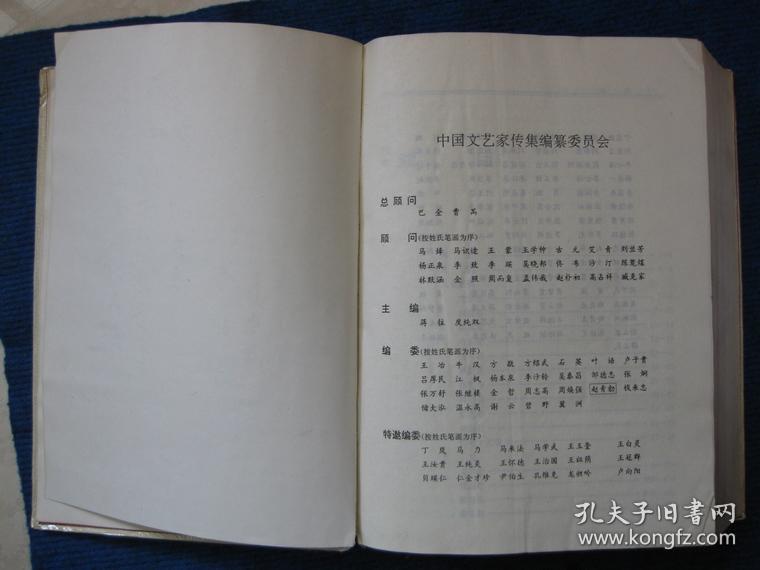 中国文艺家传集编纂委员会
总顾问
巴金 曹禺
顾问(按姓氏笔画为序)
马烽 马识途 王蒙 王学仲 古元 艾青 刘兰芳
杨正泉 李致 李瑛 吴晓邦 佟韦 沙汀 陈荒煤
林默涵 金照 周而复 孟伟哉 赵朴初 高占祥 臧克家
主编
蒋 庞纯双
编委(按姓氏笔画为序)
王冶 牛汉 方 方绪武 石英 叶 卢子贵
吕厚民 江枫 杨本泉 李 吴泰昌 邹德忠 张炯
张万舒 张继楼 金哲 周志高 周焕强 赵青勃 钱来忠
储大泓 温永高 谢云 曾野 冀洲
特邀编委(按姓氏笔画为序)
丁 马力 马来法 马学武 王玉玺 王白灵
王汝贵 王纯炎 王怀德 王治国 王祖荫 王冠群
贝赋仁 仁金才珍 尹伯生 孔维克 龙 卢向阳
孔夫子旧書网
www.kongfz.com